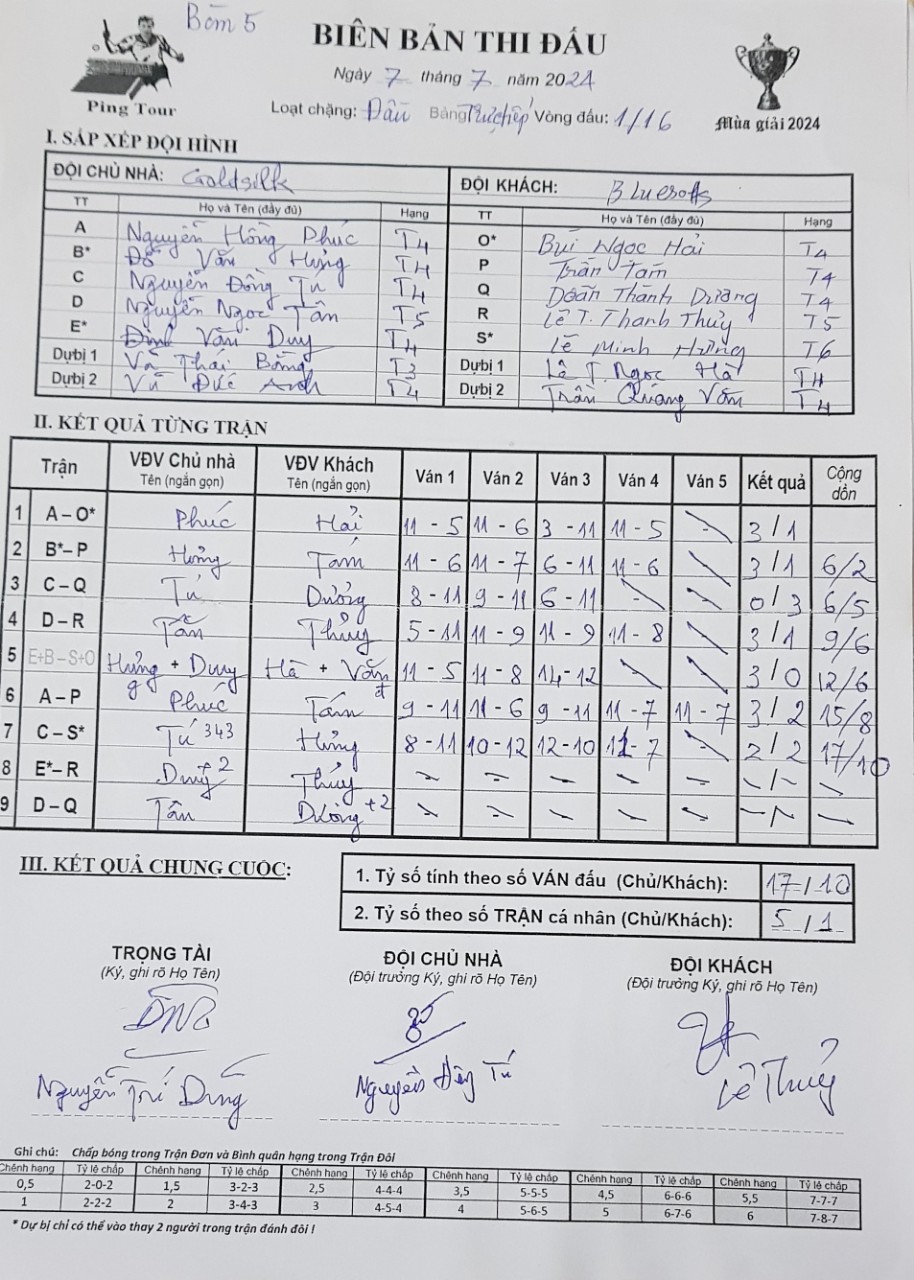 Bàn 5
BIÊN BẢN THI ĐẤU
Ngày 7 tháng 7 năm 2024
Ping Tour
Loạt chặng: Đấu Bảng Trực tiếp Vòng đấu: 1/16
Mùa giải 2024
I. SẮP XẾP ĐỘI HÌNH
ĐỘI CHỦ NHÀ: Goldsilk ĐỘI KHÁCH: Bluesofts
TT Họ và Tên (đầy đủ) Hạng TT Họ và Tên (đầy đủ) Hạng
A Nguyễn Hồng Phúc T4 O* Bùi Ngọc Hải T4
B* Đỗ Văn Hưng T4 P Trần Tám T4
C Nguyễn Đồng Tú T4 Q Doãn Thành Dương T4
D Nguyễn Ngọc Tân T5 R Lê T. Thanh Thủy T5
E* Đinh Văn Duy T4 S* Lê Minh Hưởng T6
Dự bị 1 Vũ Thái Bông T3 Dự bị 1 Lê T. Ngọc Hà T4
Dự bị 2 Vũ Đức Anh T4 Dự bị 2 Trần Quang Văn T4
II. KẾT QUẢ TỪNG TRẬN
Trận VĐV Chủ nhà Tên (ngắn gọn) VĐV Khách Tên (ngắn gọn) Ván 1 Ván 2 Ván 3 Ván 4 Ván 5 Kết quả Cộng dồn
1 A – O* Phúc Hải 11 - 5 11 - 6 3 - 11 11 - 5 - 3 / 1
2 B* – P Hưng Tám 11 - 6 11 - 7 6 - 11 11 - 6 - 3 / 1 6/2
3 C – Q Tú Dương 8 - 11 9 - 11 6 - 11 - - 0 / 3 6/5
4 D – R Tân Thủy 5 - 11 11 - 9 11 - 9 11 - 8 - 3 / 1 9/6
5 E+B – S+O Hưng + Duy Hà + Văn 11 - 5 11 - 8 14 - 12 - - 3 / 0 12/6
6 A – P Phúc Tám 9 - 11 11 - 6 9 - 11 11 - 7 11 - 7 3 / 2 15/8
7 C – S* Tú 343 Hưởng 8 - 11 10 - 12 12 - 10 11 - 7 - 2 / 2 17/10
8 E* – R Duy +2 Thủy - - - - - - / - -
9 D – Q Tân Dương +2 - - - - - - / - -
III. KẾT QUẢ CHUNG CUỘC:
1. Tỷ số tính theo số VÁN đấu (Chủ/Khách): 17 / 10
2. Tỷ số theo số TRẬN cá nhân (Chủ/Khách): 5 / 1
TRỌNG TÀI ĐỘI CHỦ NHÀ ĐỘI KHÁCH
(Ký, ghi rõ Họ Tên) (Đội trưởng Ký, ghi rõ Họ Tên) (Đội trưởng Ký, ghi rõ Họ Tên)
Nguyễn Trí Dũng Nguyễn Đồng Tú Lê Thủy
Ghi chú: Chấp bóng trong Trận Đơn và Bình quân hạng trong Trận Đôi
Chênh hạng Tỷ lệ chấp Chênh hạng Tỷ lệ chấp Chênh hạng Tỷ lệ chấp Chênh hạng Tỷ lệ chấp Chênh hạng Tỷ lệ chấp Chênh hạng Tỷ lệ chấp
0,5 2-0-2 1,5 3-2-3 2,5 4-4-4 3,5 5-5-5 4,5 6-6-6 5,5 7-7-7
1 2-2-2 2 3-4-3 3 4-5-4 4 5-6-5 5 6-7-6 6 7-8-7
* Dự bị chỉ có thể vào thay 2 người trong trận đánh đôi !